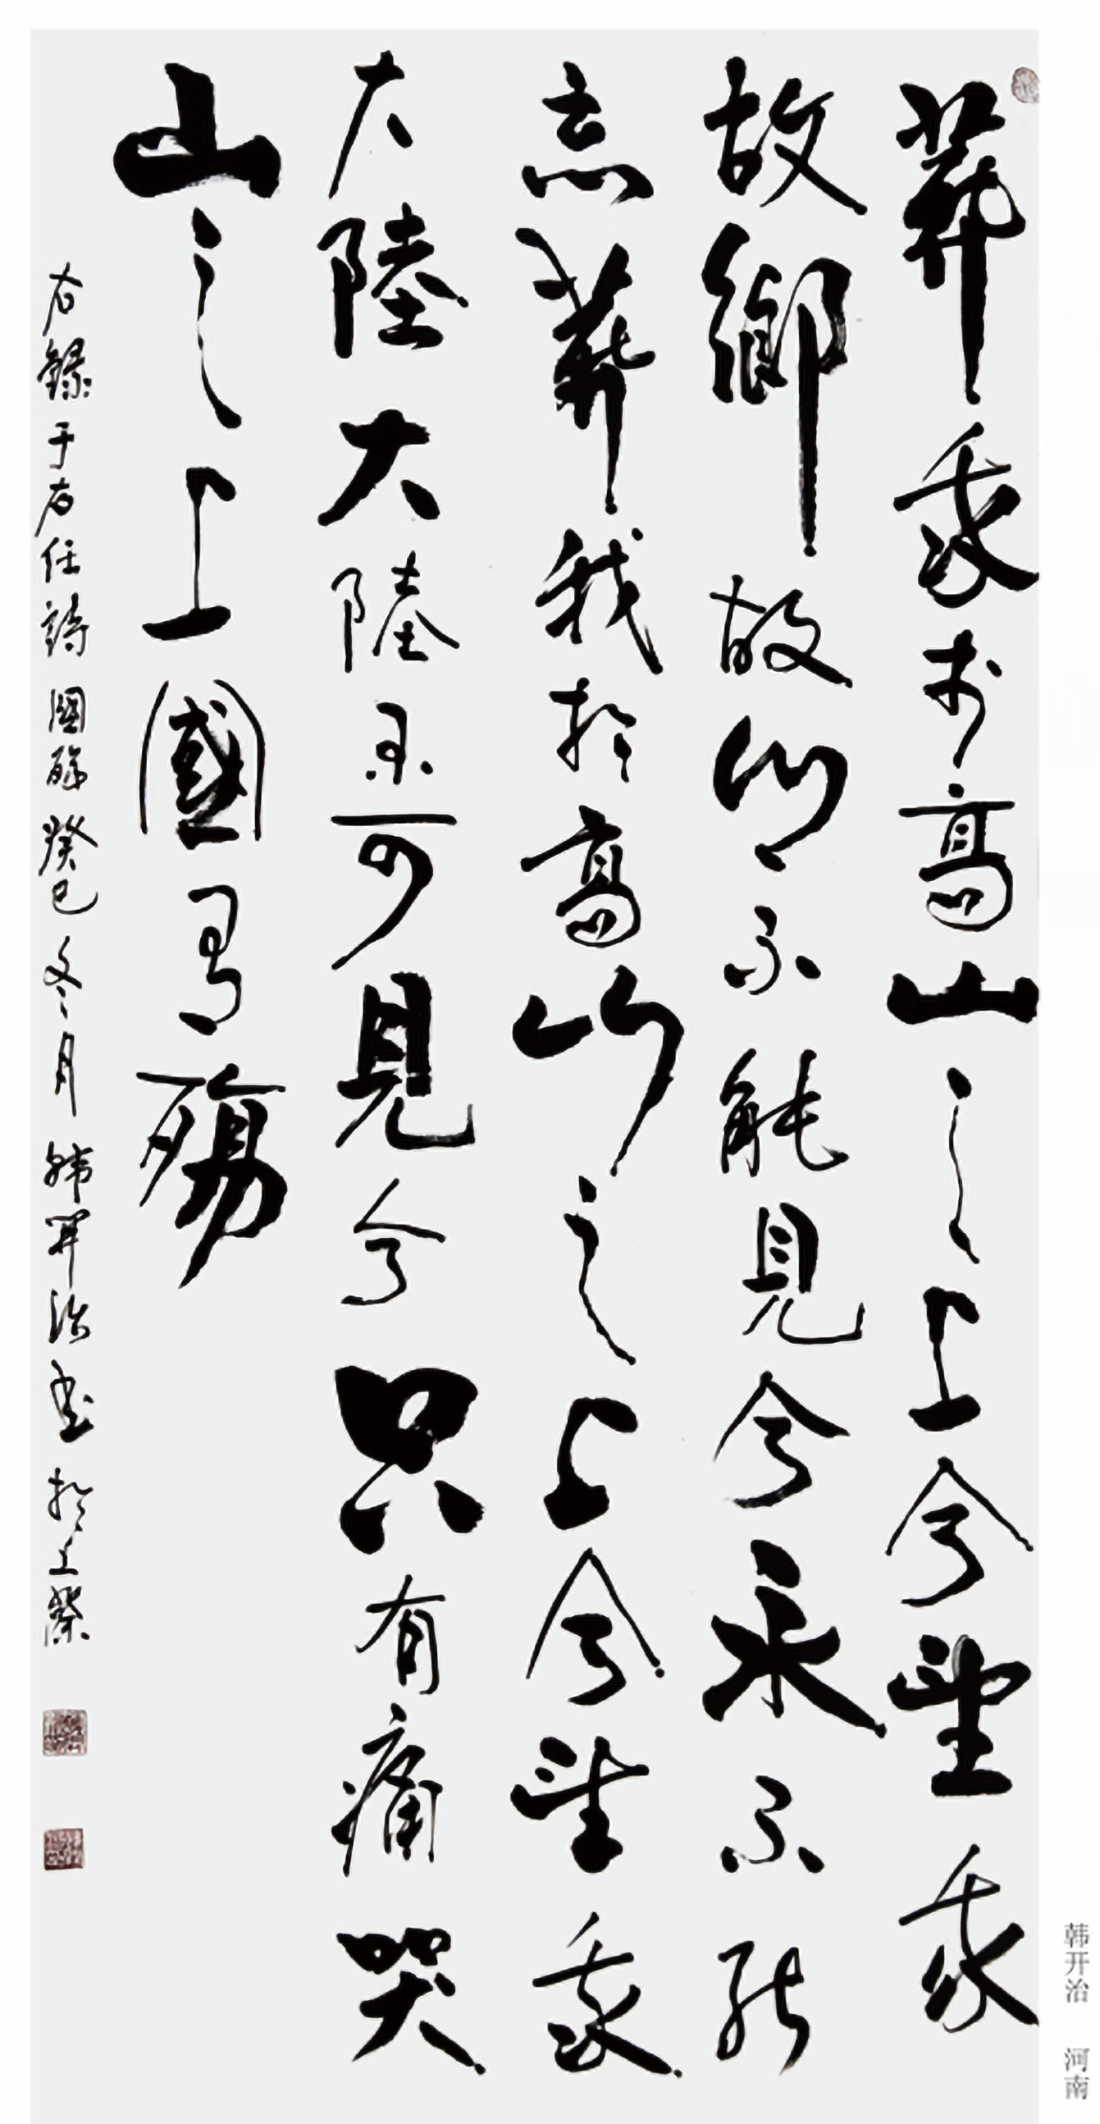 葬我於高山之上兮望我
故鄉故鄉不能見兮永不能
忘葬我於高山之上兮望我
大陸大陸不可見兮只有痛哭
山之上國有殤
右錄于右任詩國殤癸巳冬月韓開治書於上蔡
韩开治 河南